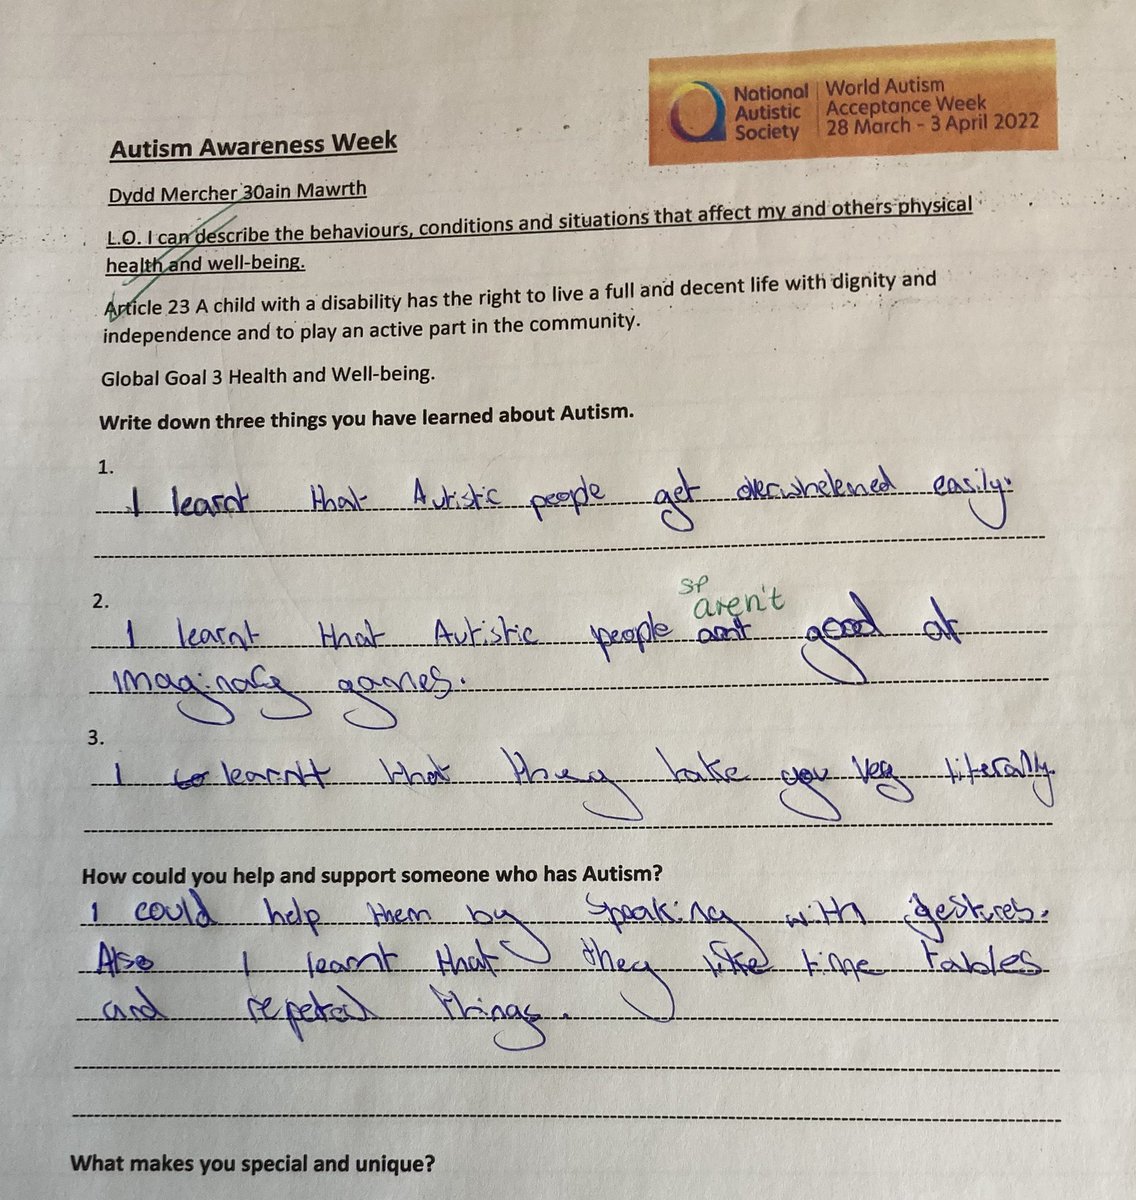 National Autistic Society
World Autism Acceptance Week
28 March - 3 April 2022
Autism Awareness Week
Dydd Mercher 30ain Mawrth
L.O. I can describe the behaviours, conditions and situations that affect my and others physical
health and well-being.
Article 23 A child with a disability has the right to live a full and decent life with dignity and
independence and to play an active part in the community.
Global Goal 3 Health and Well-being.
Write down three things you have learned about Autism.
1.
I learnt that Autistic people get overwhelemed easily.
2.
sp
aren't
I learnt that Autistic people good at
imaginary games.
3.
I learntt that they take you literally.
How could you help and support someone who has Autism?
I could help them by speaking with gestures.
Also I learnt that they like time tables
and things.
What makes you special and unique?